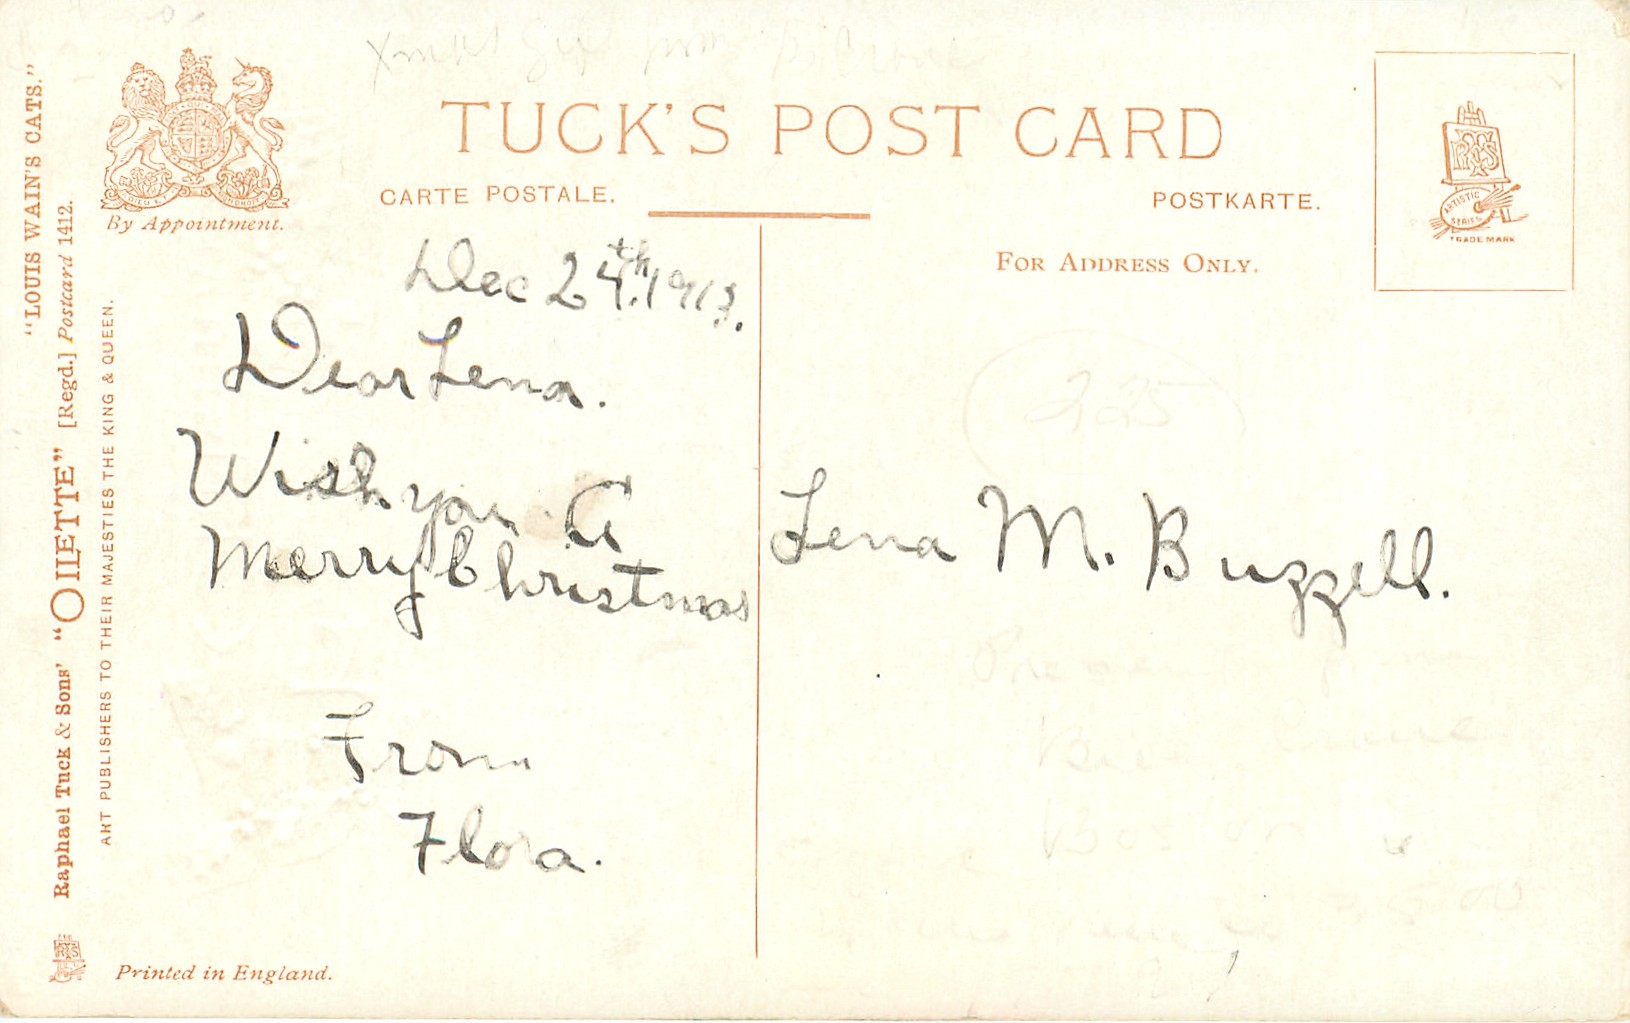 Xmas Gif from
TUCK'S POST CARD
CARTE POSTALE.
POSTKARTE.
FOR ADDRESS ONLY.
By Appointment.
"LOUIS WAIN'S CATS."
Raphael Tuck & Sons' "OILETTE" [Regd.] Postcard 1412.
ART PUBLISHERS TO THEIR MAJESTIES THE KING & QUEEN.
RTS
ARTISTIC
SERIES
TRADE MARK
Dec 24th. 1913.
Dear Lena.
Wish you A
Merry Christmas
From
Flora.
225
Lena M. Buzzell.
Present from
Boston
5.00
RTS
Printed in England.